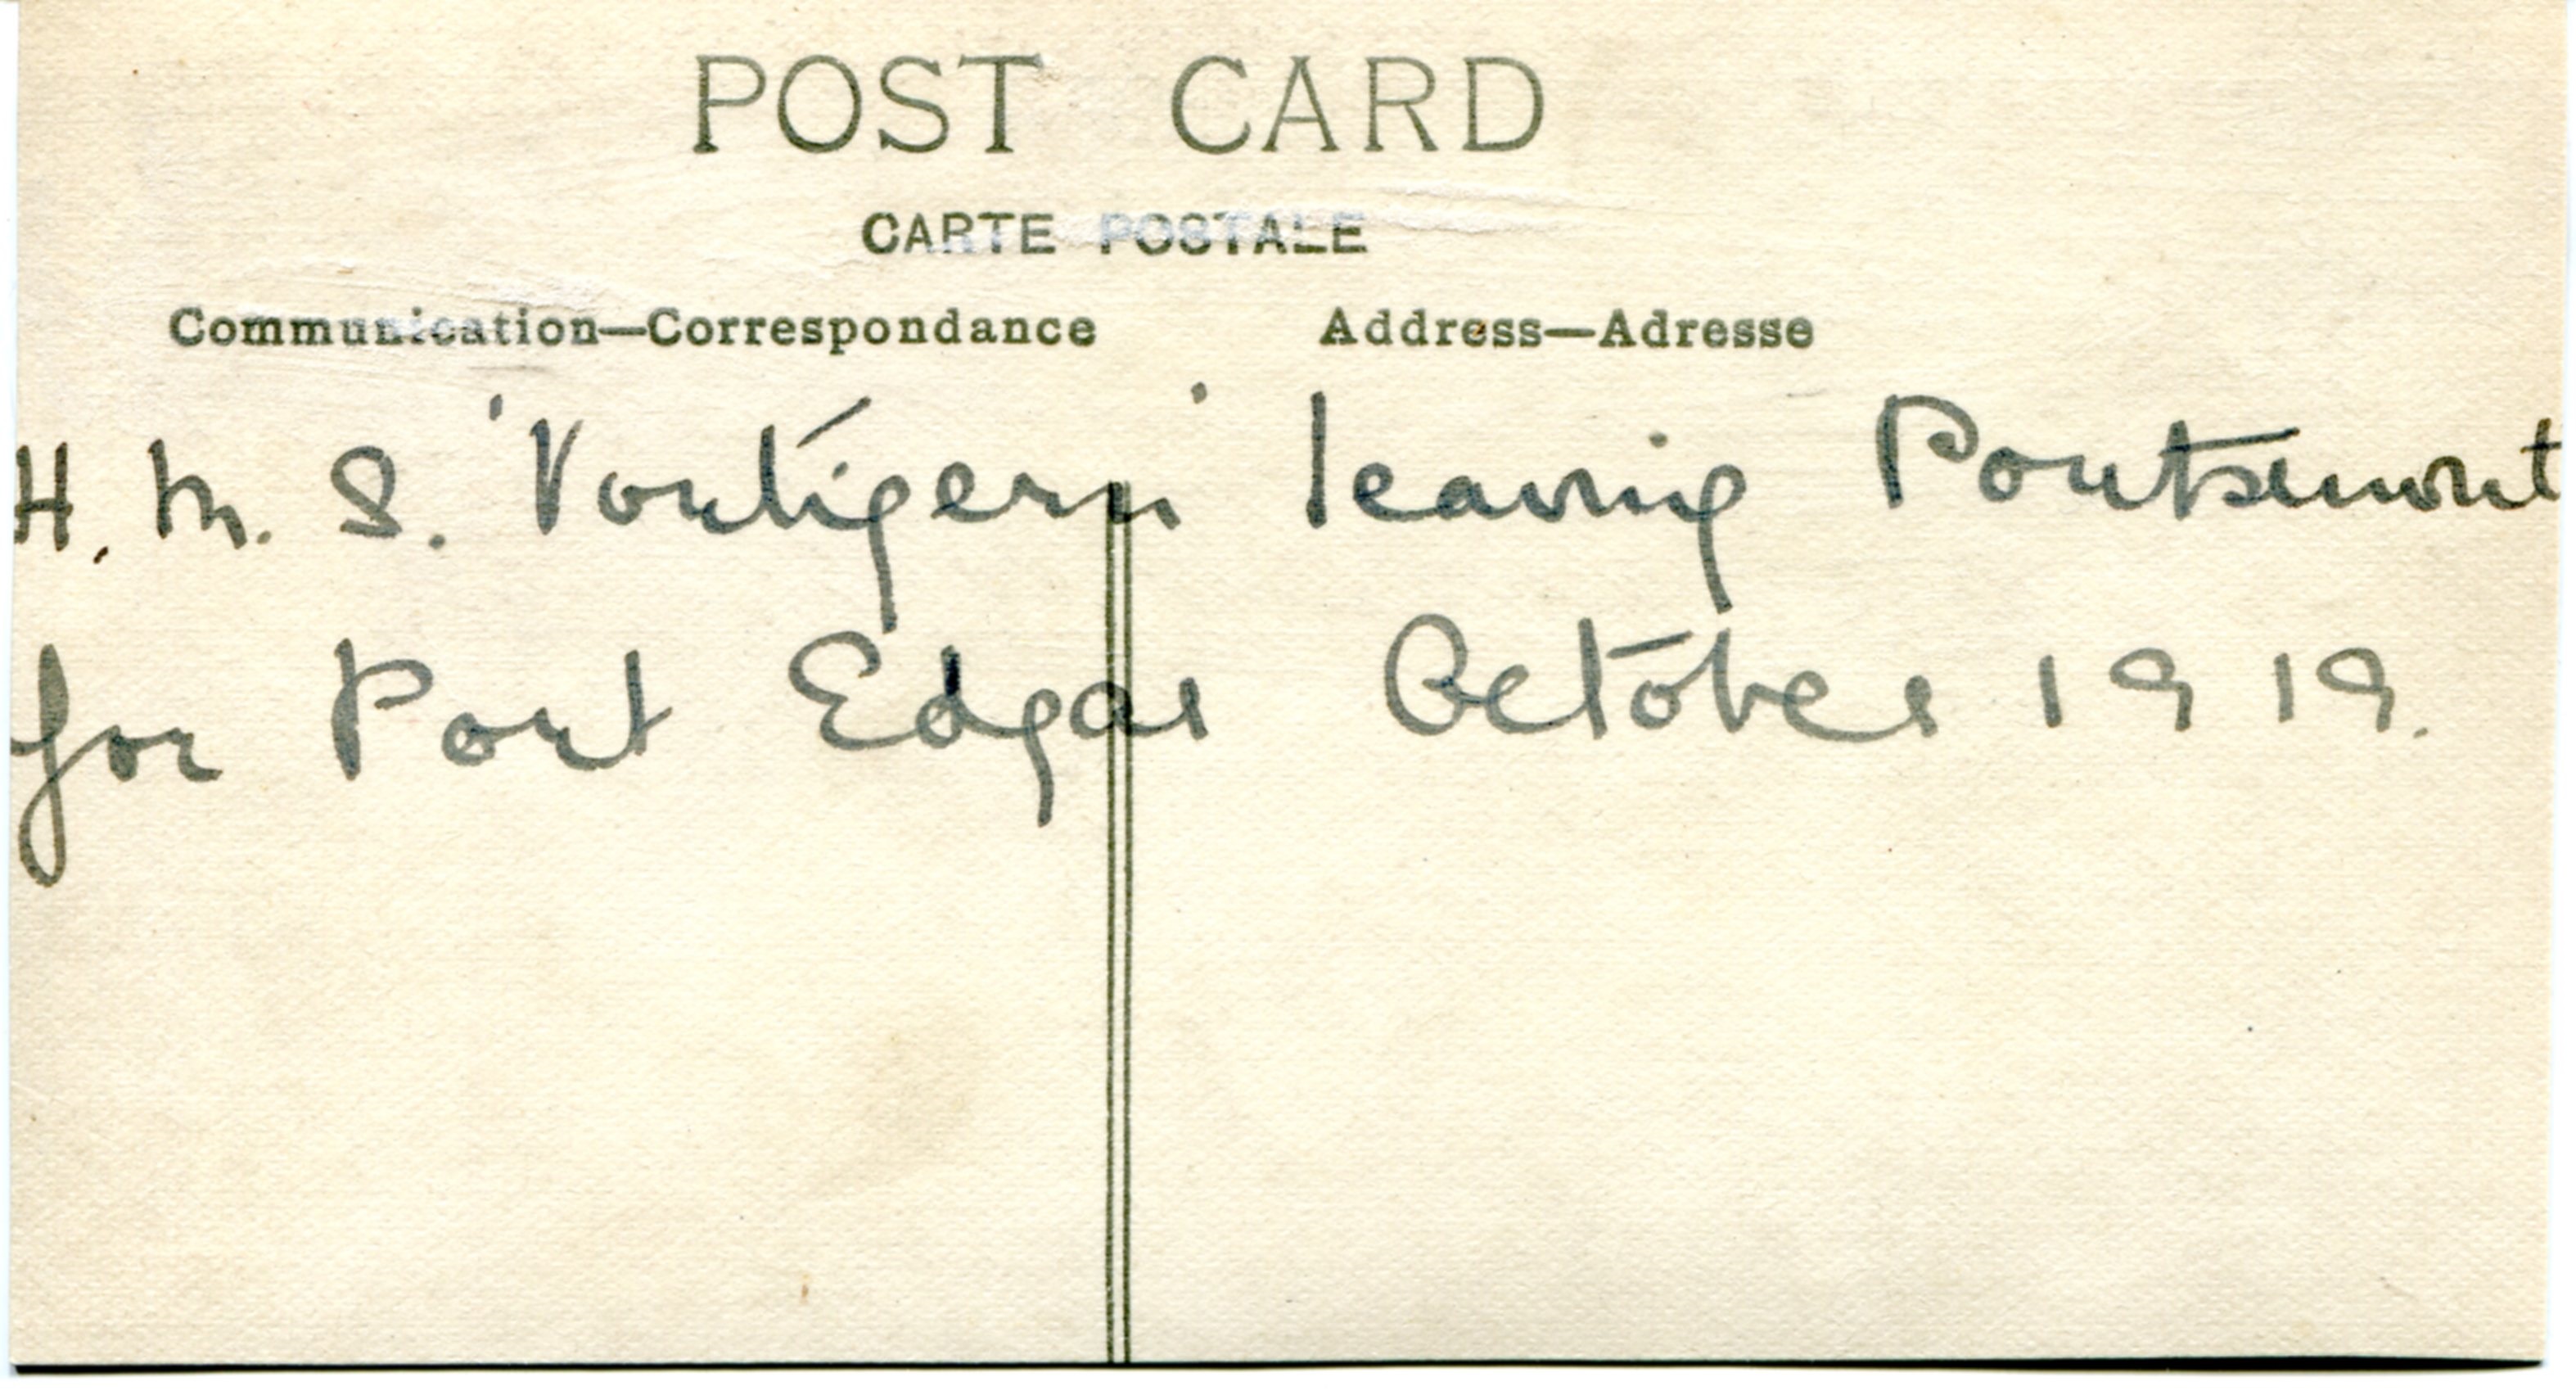 POST CARD
CARTE POSTALE
Communication—Correspondance
Address—Adresse
H. M. S. 'Vortigern' leaving Portsmout
for Port Edgar October 1919.